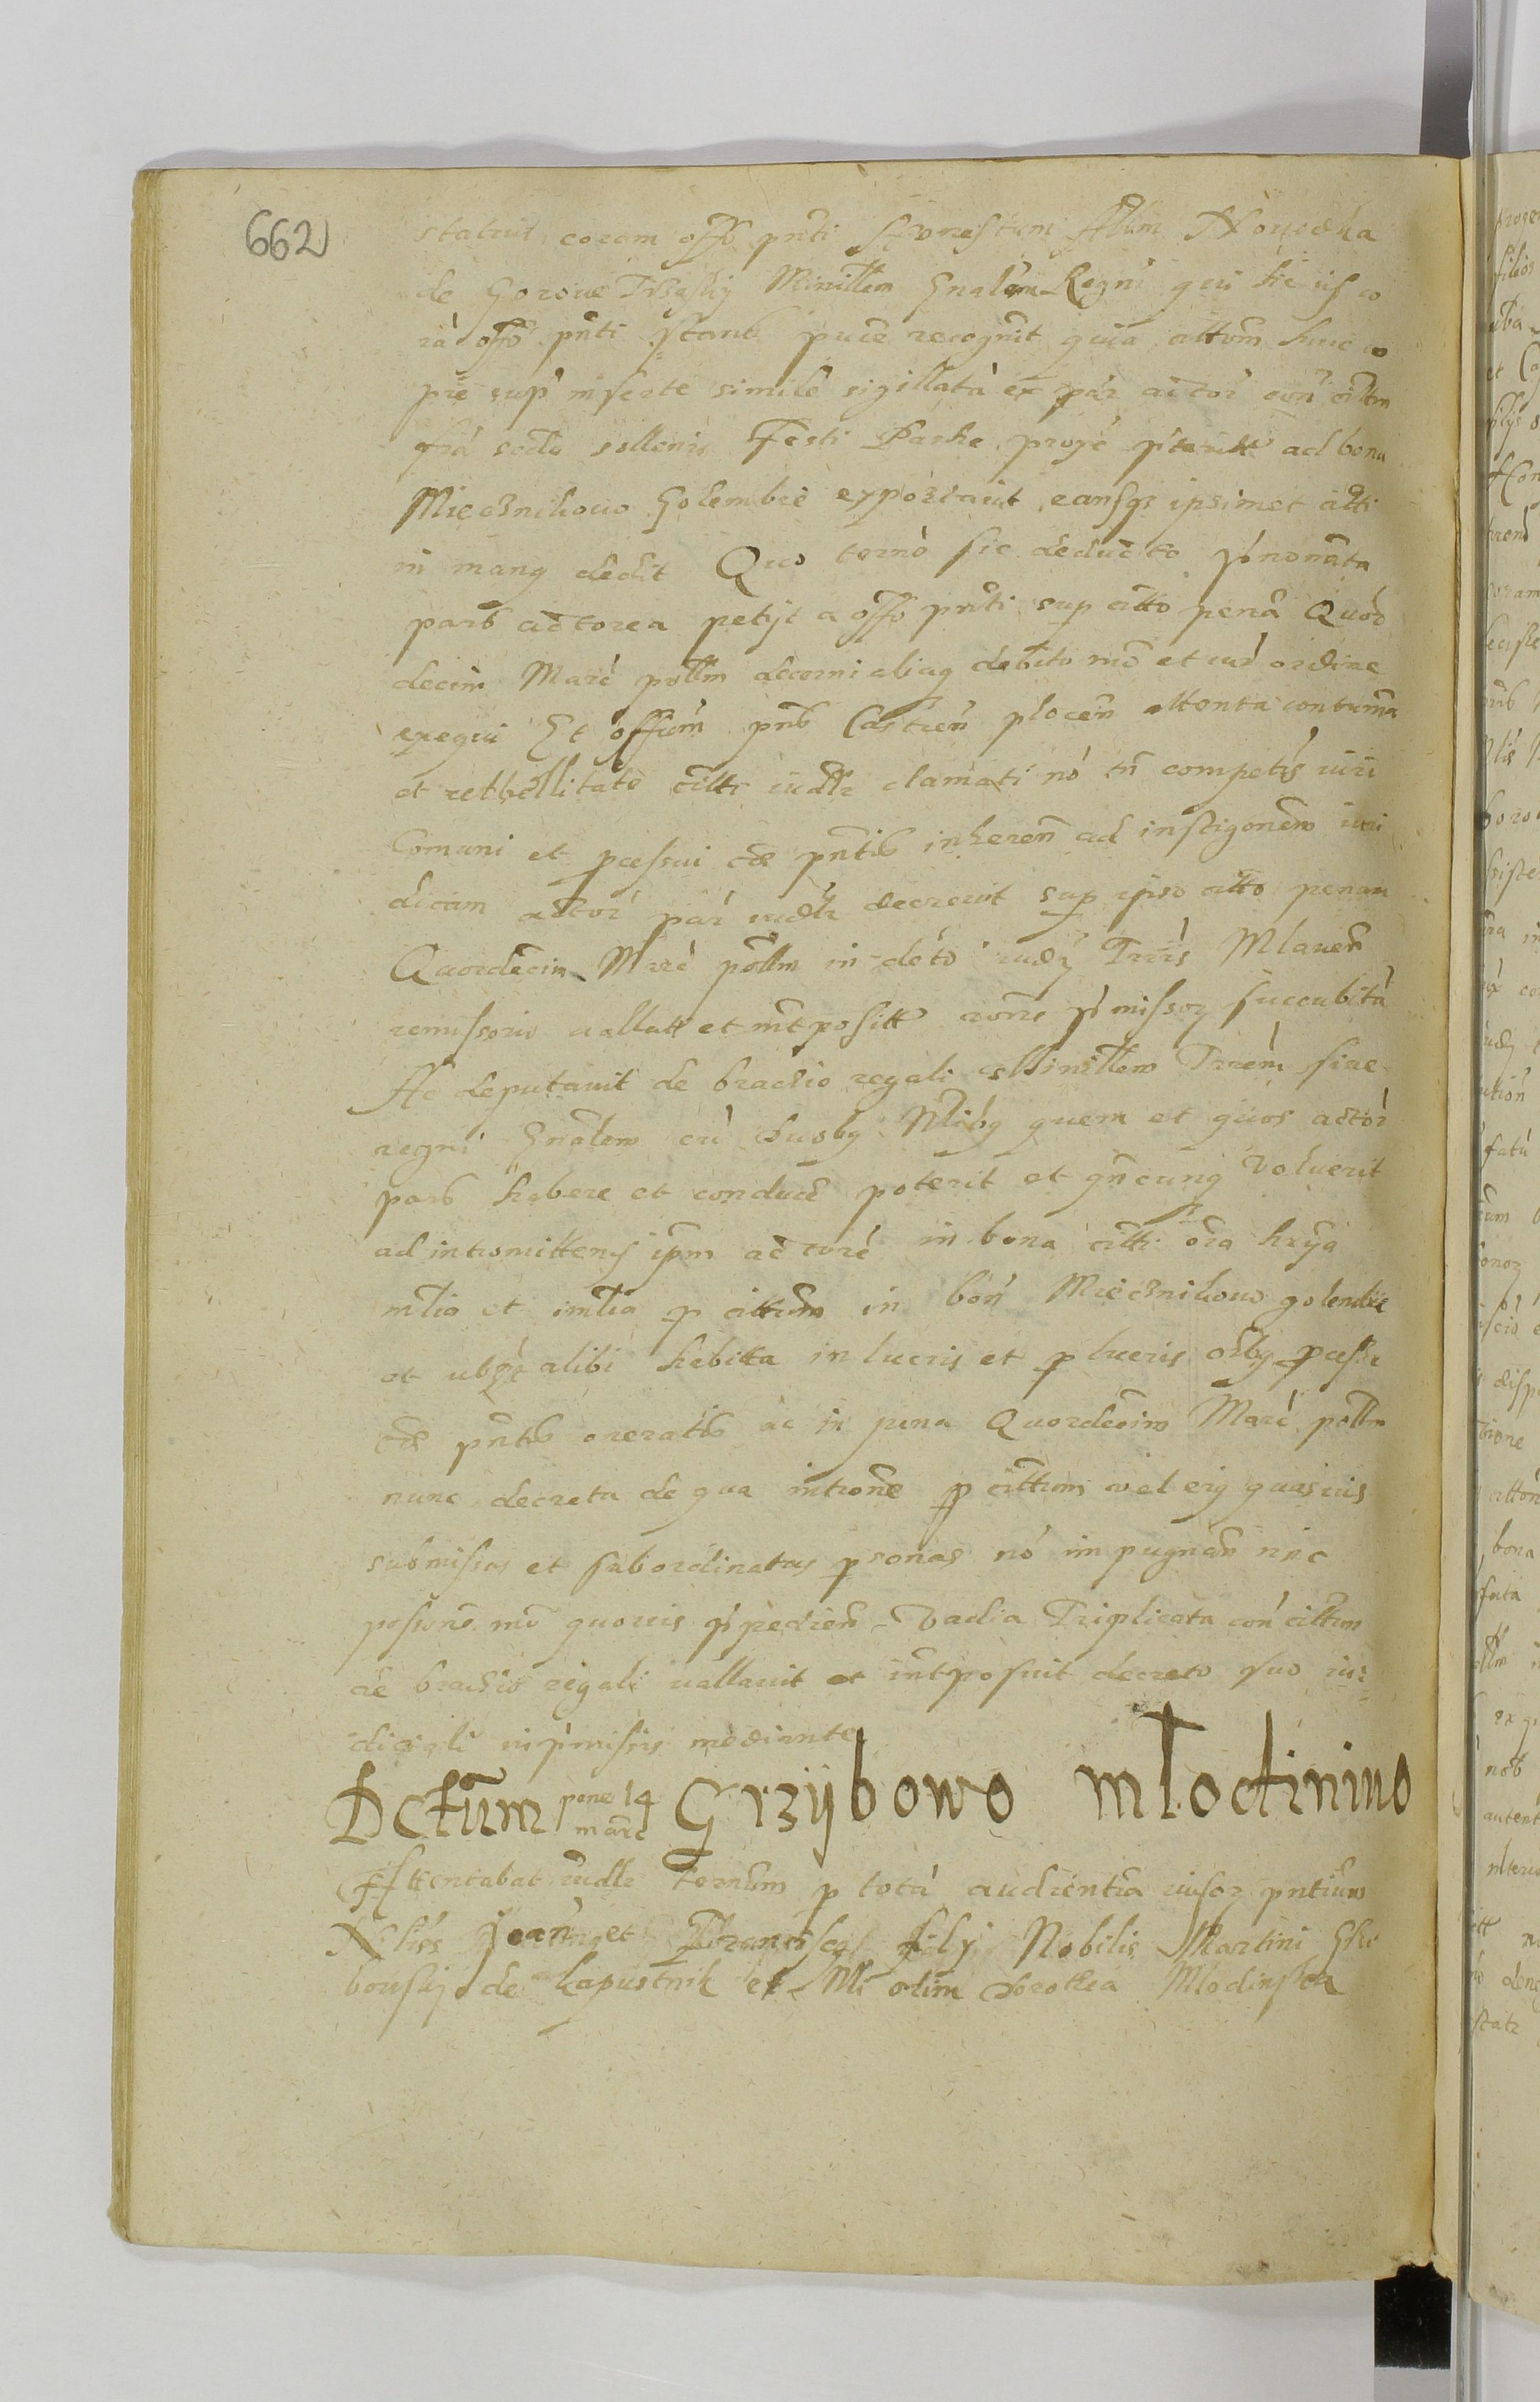 662
statuit coram offo pnti honestum Albm Nowothka
de Gorowe Trzasky Minitlem Gnalem Regni qui hic is co
rà offo pnti stans puce recognit quia cittom huic
pre sup inserte simile sigillatà ex par actor con cittm
fria scdo sollenis Festi Pasche proxe pterittu ad bona
Miecznikowo Golembie exportavit eansqз ipsimet citti
in manq dedit Quo termo sic deducto pnonata
pars actorea petijt a offo pnti sup citto pena Quor
decim Marc pollm decerni aliaq debito mo et iur ordine
exequi Et offium pns Castren plocen attenta contuma
et rebellitate citti iudlr clamati nò tn competes iuri
Comuni et pcessui cor pntib inheren ad instigonem iuri
dicam actor par iudlr decrevit sup ipso citto penam
Quordecim Marc pollm in deto iudy Trris Mlaven
remissorio vallatt et intpositt rone pmissoz succubità
Ac deputavit de brachio regali Minitlem Trrem sive
regni Gnalem cù duobq Nlibq quem et quos actor
pars habere et conduce poterit et qncunq voluerit
ad intromittenс ipm actore in bona citti oia hrya
mlia et imlia p cittum in bon Miecznikowo golembie
et ubqз alibi habitta in lucris et p lucris oibq pcessu
cor pntib oneratis ac in pena Quordecim Marc pollm
nunc decreta de qua introne p cittum vel eiq quasvis
submissas et subordinatas psonas nò impugnan nec
possone mo quovis pedien Vadia Triplicata con cittum
de brachio regali vallavit et intposuit decreto suo iu
diciali in pmissis mediante
Actum pene 14 marc Grzÿbowo Mlodinino
Attentabat iudlr termum p totà audientia iusoz pntium
Nobiles Joannes et Franciscq filij Nobilis Martini Grzi
bowskij de Kapustnik et Nli olim Dorothea Mlodinska